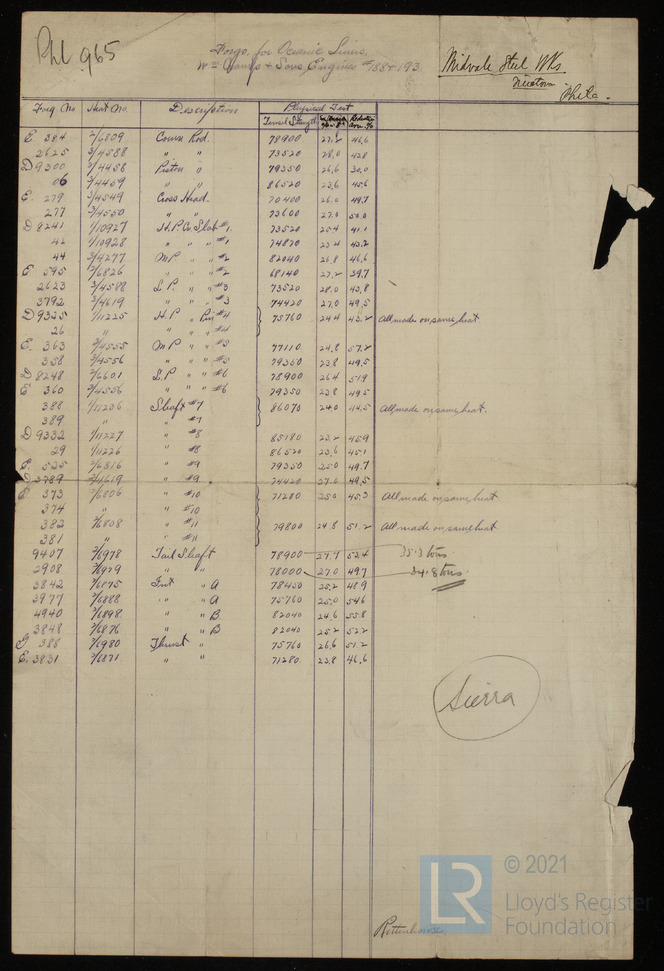 Phl 965
Forgs. for Oceanic Liners.
Wm Cramps & Sons, Engines # 188 & 193.
Midvale Steel Wks
Nicetown
Phila.
Forg. No Heat No. Description Physical Test
Tensil Strength
E 384 2/6809 Conn Rod. 78900 27.2 46.6
2625 3/4588 " " 73520 28.0 42.8
D 9300 3/4458 Piston " 79350 26.6 50.0
06 3/4459 " " 86520 23.6 45.6
E. 279 3/4549 Cross Head. 70400 26.0 49.7
277 3/4550 73600 27.0 50.0
D 8241 1/10927 H.P. Co Slab #1. 73520 25.4 41.1
42 1/10928 " " " #1 74870 23.4 43.2
44 3/4277 M.P. " " #2 82040 26.8 46.6
E 595 2/6826 " " " #2 68140 27.2 39.7
2623 3/4588 L.P. " " #3 73520 28.0 43.8
3792 3/4619 " " " #3 74420 27.0 49.5
D 9325 1/11225 H.P " Pin #4 75760 24.4 43.2 All made on same heat
26 " " " " #4
E. 363 3/4555 M.P " " #5 77110 24.8 57.2
358 3/4556 " " " #5 79350 23.8 49.5
D 8248 2/6601 L.P " " #6 78900 26.4 51.9
E 360 3/4556 " " " #6 79350 23.8 49.5
388 1/11236 Shaft #7 86070 24.0 44.5 All made on same heat.
389 " " #7
D 9332 1/11227 " #8 85180 23.2 45.9
29 1/11226 " #8 86520 23.6 45.1
E. 525 2/6816 " #9 79350 25.0 49.7
D 3789 3/4619 " #9 74420 27.0 49.5
E 373 2/6806 " #10 71280 25.0 45.3 All made on same heat
374 " " #10
382 2/6808 " #11 79800 24.8 51.2 All made on same heat
381 " " #11
9407 2/6978 Tail Shaft 78900 27.7 52.4 35.3 tons
2908 2/6979 " " 78000 27.0 49.7 34.8 tons
3842 2/6875 Int " A 78450 25.2 48.9
3977 2/6888 " " A 75760 25.0 54.6
4940 2/6898 " " B 82040 24.6 55.8
3848 2/6876 " " B 82040 25.2 52.2
388 2/6980 Thrust " 75760 26.6 51.2
E. 3831 2/6871 " " 71280 23.8 46.6
Sierra
Rittenhouse
© 2021
LR
Lloyd's Register
Foundation